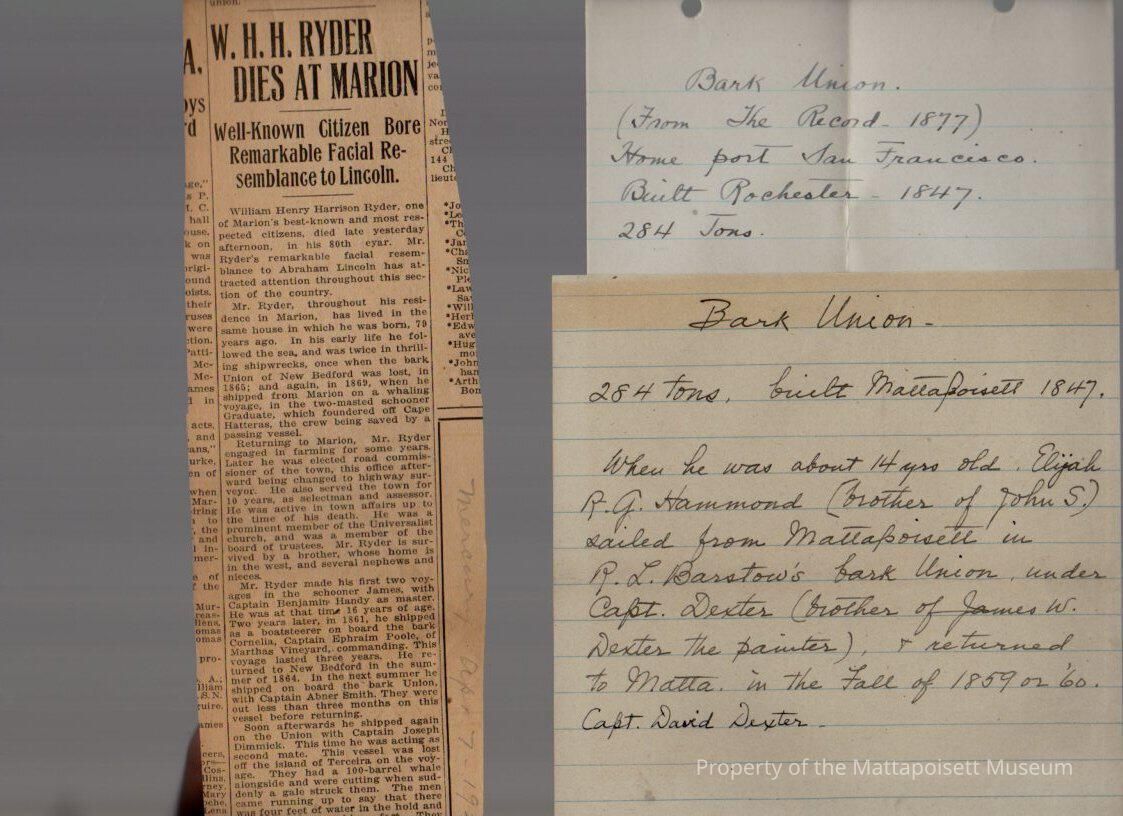 union.
W. H. H. RYDER
DIES AT MARION
Well-Known Citizen Bore
Remarkable Facial Re-
semblance to Lincoln.
William Henry Harrison Ryder, one
of Marion's best-known and most res-
pected citizens, died late yesterday
afternoon, in his 80th eyar. Mr.
Ryder's remarkable facial resem-
blance to Abraham Lincoln has at-
tracted attention throughout this sec-
tion of the country.
Mr. Ryder, throughout his resi-
dence in Marion, has lived in the
same house in which he was born, 79
years ago. In his early life he fol-
lowed the sea, and was twice in thrill-
ing shipwrecks, once when the bark
Union of New Bedford was lost, in
1865; and again, in 1869, when he
shipped from Marion on a whaling
voyage, in the two-masted schooner
Graduate, which foundered off Cape
Hatteras, the crew being saved by a
passing vessel.
Returning to Marion, Mr. Ryder
engaged in farming for some years.
Later he was elected road commis-
sioner of the town, this office after-
ward being changed to highway sur-
veyor. He also served the town for
10 years, as selectman and assessor.
He was active in town affairs up to
the time of his death. He was a
prominent member of the Universalist
church, and was a member of the
board of trustees. Mr. Ryder is sur-
vived by a brother, whose home is
in the west, and several nephews and
nieces.
Mr. Ryder made his first two voy-
ages in the schooner James, with
Captain Benjamin Handy as master.
He was at that time 16 years of age.
Two years later, in 1861, he shipped
as a boatsteerer on board the bark
Cornelia, Captain Ephraim Poole, of
Marthas Vineyard, commanding. This
voyage lasted three years. He re-
turned to New Bedford in the sum-
mer of 1864. In the next summer he
shipped on board the bark Union,
with Captain Abner Smith. They were
out less than three months on this
vessel before returning.
Soon afterwards he shipped again
on the Union with Captain Joseph
Dimmick. This time he was acting as
second mate. This vessel was lost
off the island of Terceira on the voy-
age. They had a 100-barrel whale
alongside and were cutting when sud-
denly a gale struck them. The men
came running up to say that there
was four feet of water in the hold and
Bark Union.
(From The Record - 1877)
Home port San Francisco.
Built Rochester - 1847.
284 Tons.
Bark Union -
284 tons, built Mattapoisett 1847.
When he was about 14 yrs old, Elijah
R. G. Hammond (brother of John S.)
sailed from Mattapoisett in
R. L. Barstow's bark Union, under
Capt. Dexter (brother of James W.
Dexter the painter), & returned
to Matta. in the Fall of 1859 or '60.
Capt. David Dexter -
Property of the Mattapoisett Museum